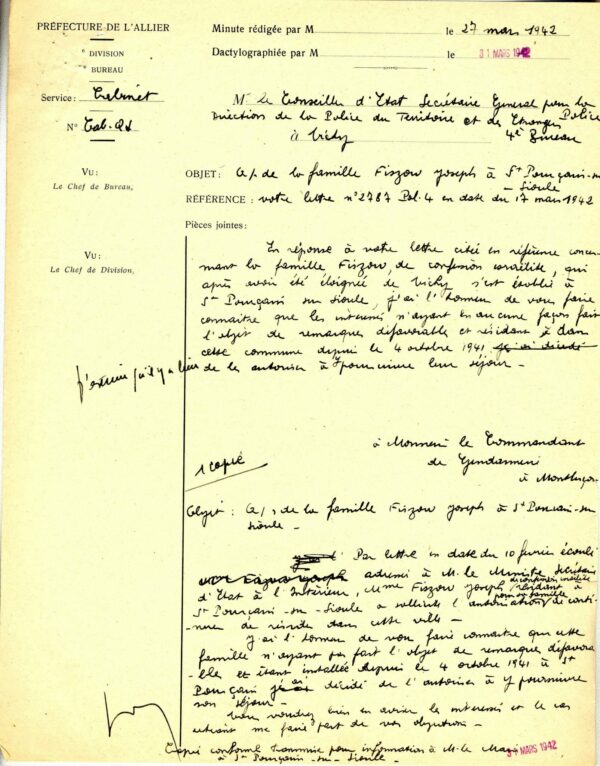 PRÉFECTURE DE L'ALLIER
° DIVISION
° BUREAU
Service : Cabinet
N° Cab. QJ
VU :
Le Chef de Bureau,
VU :
Le Chef de Division,
Minute rédigée par M le 27 mars 1942
Dactylographiée par M le 31 MARS 1942
Mr le Conseiller d'Etat Secrétaire General pour la Police
Direction de la Police du Territoire et des Etrangers
à Vichy 4e Bureau
OBJET : a/s de la famille Fiszow Joseph à St Pourçain-sur
- Sioule
RÉFÉRENCE : votre lettre n° 2787 Pol. 4 en date du 17 mars 1942
Pièces jointes :
En réponse à votre lettre citée en référence concer
nant la famille Fiszow, de confession israélite, qui
après avoir été éloignée de Vichy s'est établie à
St Pourçain sur Sioule, j'ai l'honneur de vous faire
connaitre que les intéressés n'ayant en aucune façon fait
l'objet de remarque défavorable et résidant à dans
cette commune depuis le 4 octobre 1941 j'ai décidé
j'estime qu'il y a lieu de les autoriser à y poursuivre leur séjour -
1 copie
à Monsieur le Commandant
de Gendarmerie
à Montluçon
Objet : a/s de la famille Fiszow Joseph à St Pourcain-sur
Sioule -
Par lettre en date du 10 fevrier écoulé
adressée à M. le Ministre Secrétaire
d'Etat à l'Intérieur, Mme Fiszow Joseph, de confession israélite résidant à
St Pourçain-sur-Sioule a sollicité pour sa famille l'autorisation de conti-
nuer de résider dans cette ville -
J'ai l'honneur de vous faire connaitre que cette
famille n'ayant pas fait l'objet de remarque défavora
-ble et étant installée depuis le 4 octobre 1941 à St
Pourçain j'ai décidé de l'autoriser à y poursuivre
son séjour -
Vous voudrez bien en aviser les interessés et le cas
échéant me faire part de vos objections -
Copie conforme transmise pour information à M. le Maire
à St Pourçain-sur-Sioule -
31 MARS 1942